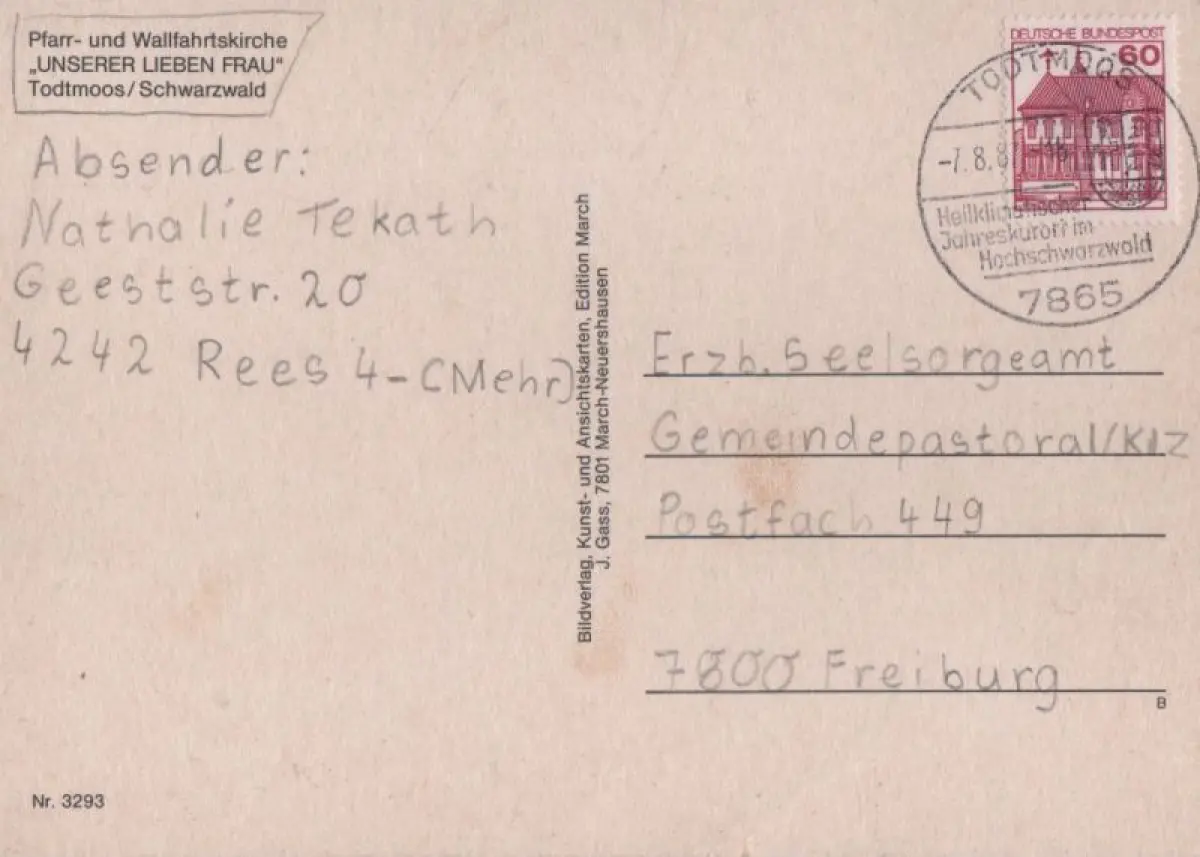 Pfarr- und Wallfahrtskirche
„UNSERER LIEBEN FRAU“
Todtmoos/Schwarzwald
Absender:
Nathalie Tekath
Geeststr. 20
4242 Rees 4-(Mehr)
Nr. 3293
Bildverlag, Kunst- und Ansichtskarten, Edition March
J. Gass, 7801 March-Neuershausen
DEUTSCHE BUNDESPOST
60
TODTMOOS
-7.8.8
Heilklimatischer
Jahreskurort im
Hochschwarzwald
7865
Erzb. Seelsorgeamt
Gemeindepastoral/KIZ
Postfach 449
7800 Freiburg
B